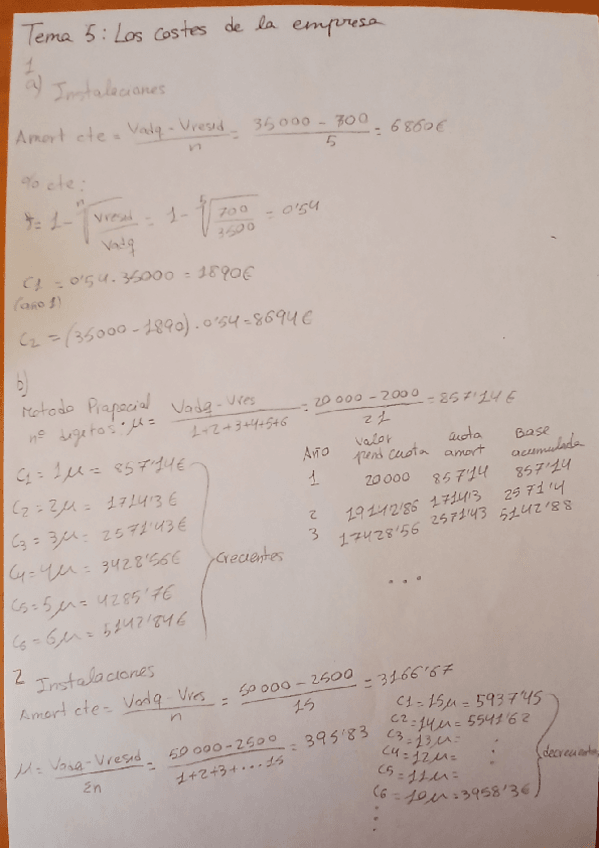 Tema 5: Los costes de la empresa
1
a) Instalaciones
Amort cte = Vadq - Vresid / n = 35000 - 700 / 5 = 6860€
% cte:
t = 1 - ⁿ√(Vresid / Vadq) = 1 - ⁵√(700 / 3500) = 0'54
C1 = 0'54 · 35000 = 1890€
(año 1)
C2 = (35000 - 1890) · 0'54 = 8694€
b)
Metodo
nº digitos: μ = Vadq - Vres / 1+2+3+4+5+6 = 20000 - 2000 / 21 = 857'14€
C1 = 1μ = 857'14€
C2 = 2μ = 1714'3€
C3 = 3μ = 2571'43€
C4 = 4μ = 3428'56€
C5 = 5μ = 4285'7€
C6 = 6μ = 5142'84€
Crecientes
Año Valor cuota Base
pend cuota amort acumulada
1 20000 857'14 857'14
2 19142'86 1714'3 2571'4
3 17428'56 2571'43 5142'88
...
2 Instalaciones
Amort cte = Vadq - Vres / n = 50000 - 2500 / 15 = 3166'67
μ = Vadq - Vresid / Σn = 50000 - 2500 / 1+2+3+...15 = 395'83
C1 = 15μ = 5937'45
C2 = 14μ = 5541'62
C3 = 13μ =
C4 = 12μ = :
C5 = 11μ = :
C6 = 10μ = 3958'3€
decrecientes